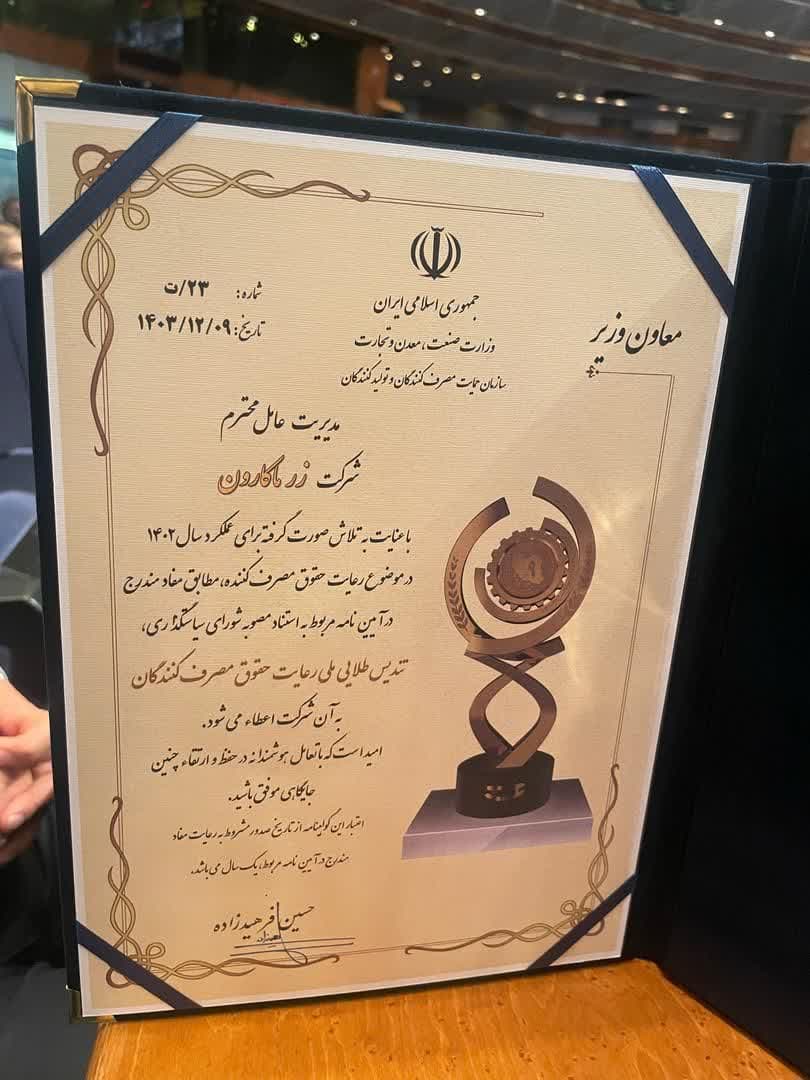 جمهوری اسلامی ایران
وزارت صنعت، معدن و تجارت
سازمان حمایت مصرف کنندگان و تولید کنندگان
معاون وزیر
شماره: ۲۳/ت
تاریخ: ۱۴۰۳/۱۲/۰۹
مدیریت عامل محترم
شرکت زر ماکارون
با عنایت به تلاش صورت گرفته برای عملکرد سال ۱۴۰۲
در موضوع رعایت حقوق مصرف کننده، مطابق مفاد مندرج
در آیین نامه مربوط به استناد مصوبه شورای سیاستگذاری،
تندیس طلایی ملی رعایت حقوق مصرف کنندگان
به آن شرکت اعطاء می شود.
امید است که با تعامل هوشمندانه در حفظ و ارتقاء چنین
جایگاهی موفق باشید.
اعتبار این گواینامه از تاریخ صدور مشروط به رعایت مفاد
مندرج در آیین نامه مربوط، یک سال می باشد.
حسین فرهیدزاده